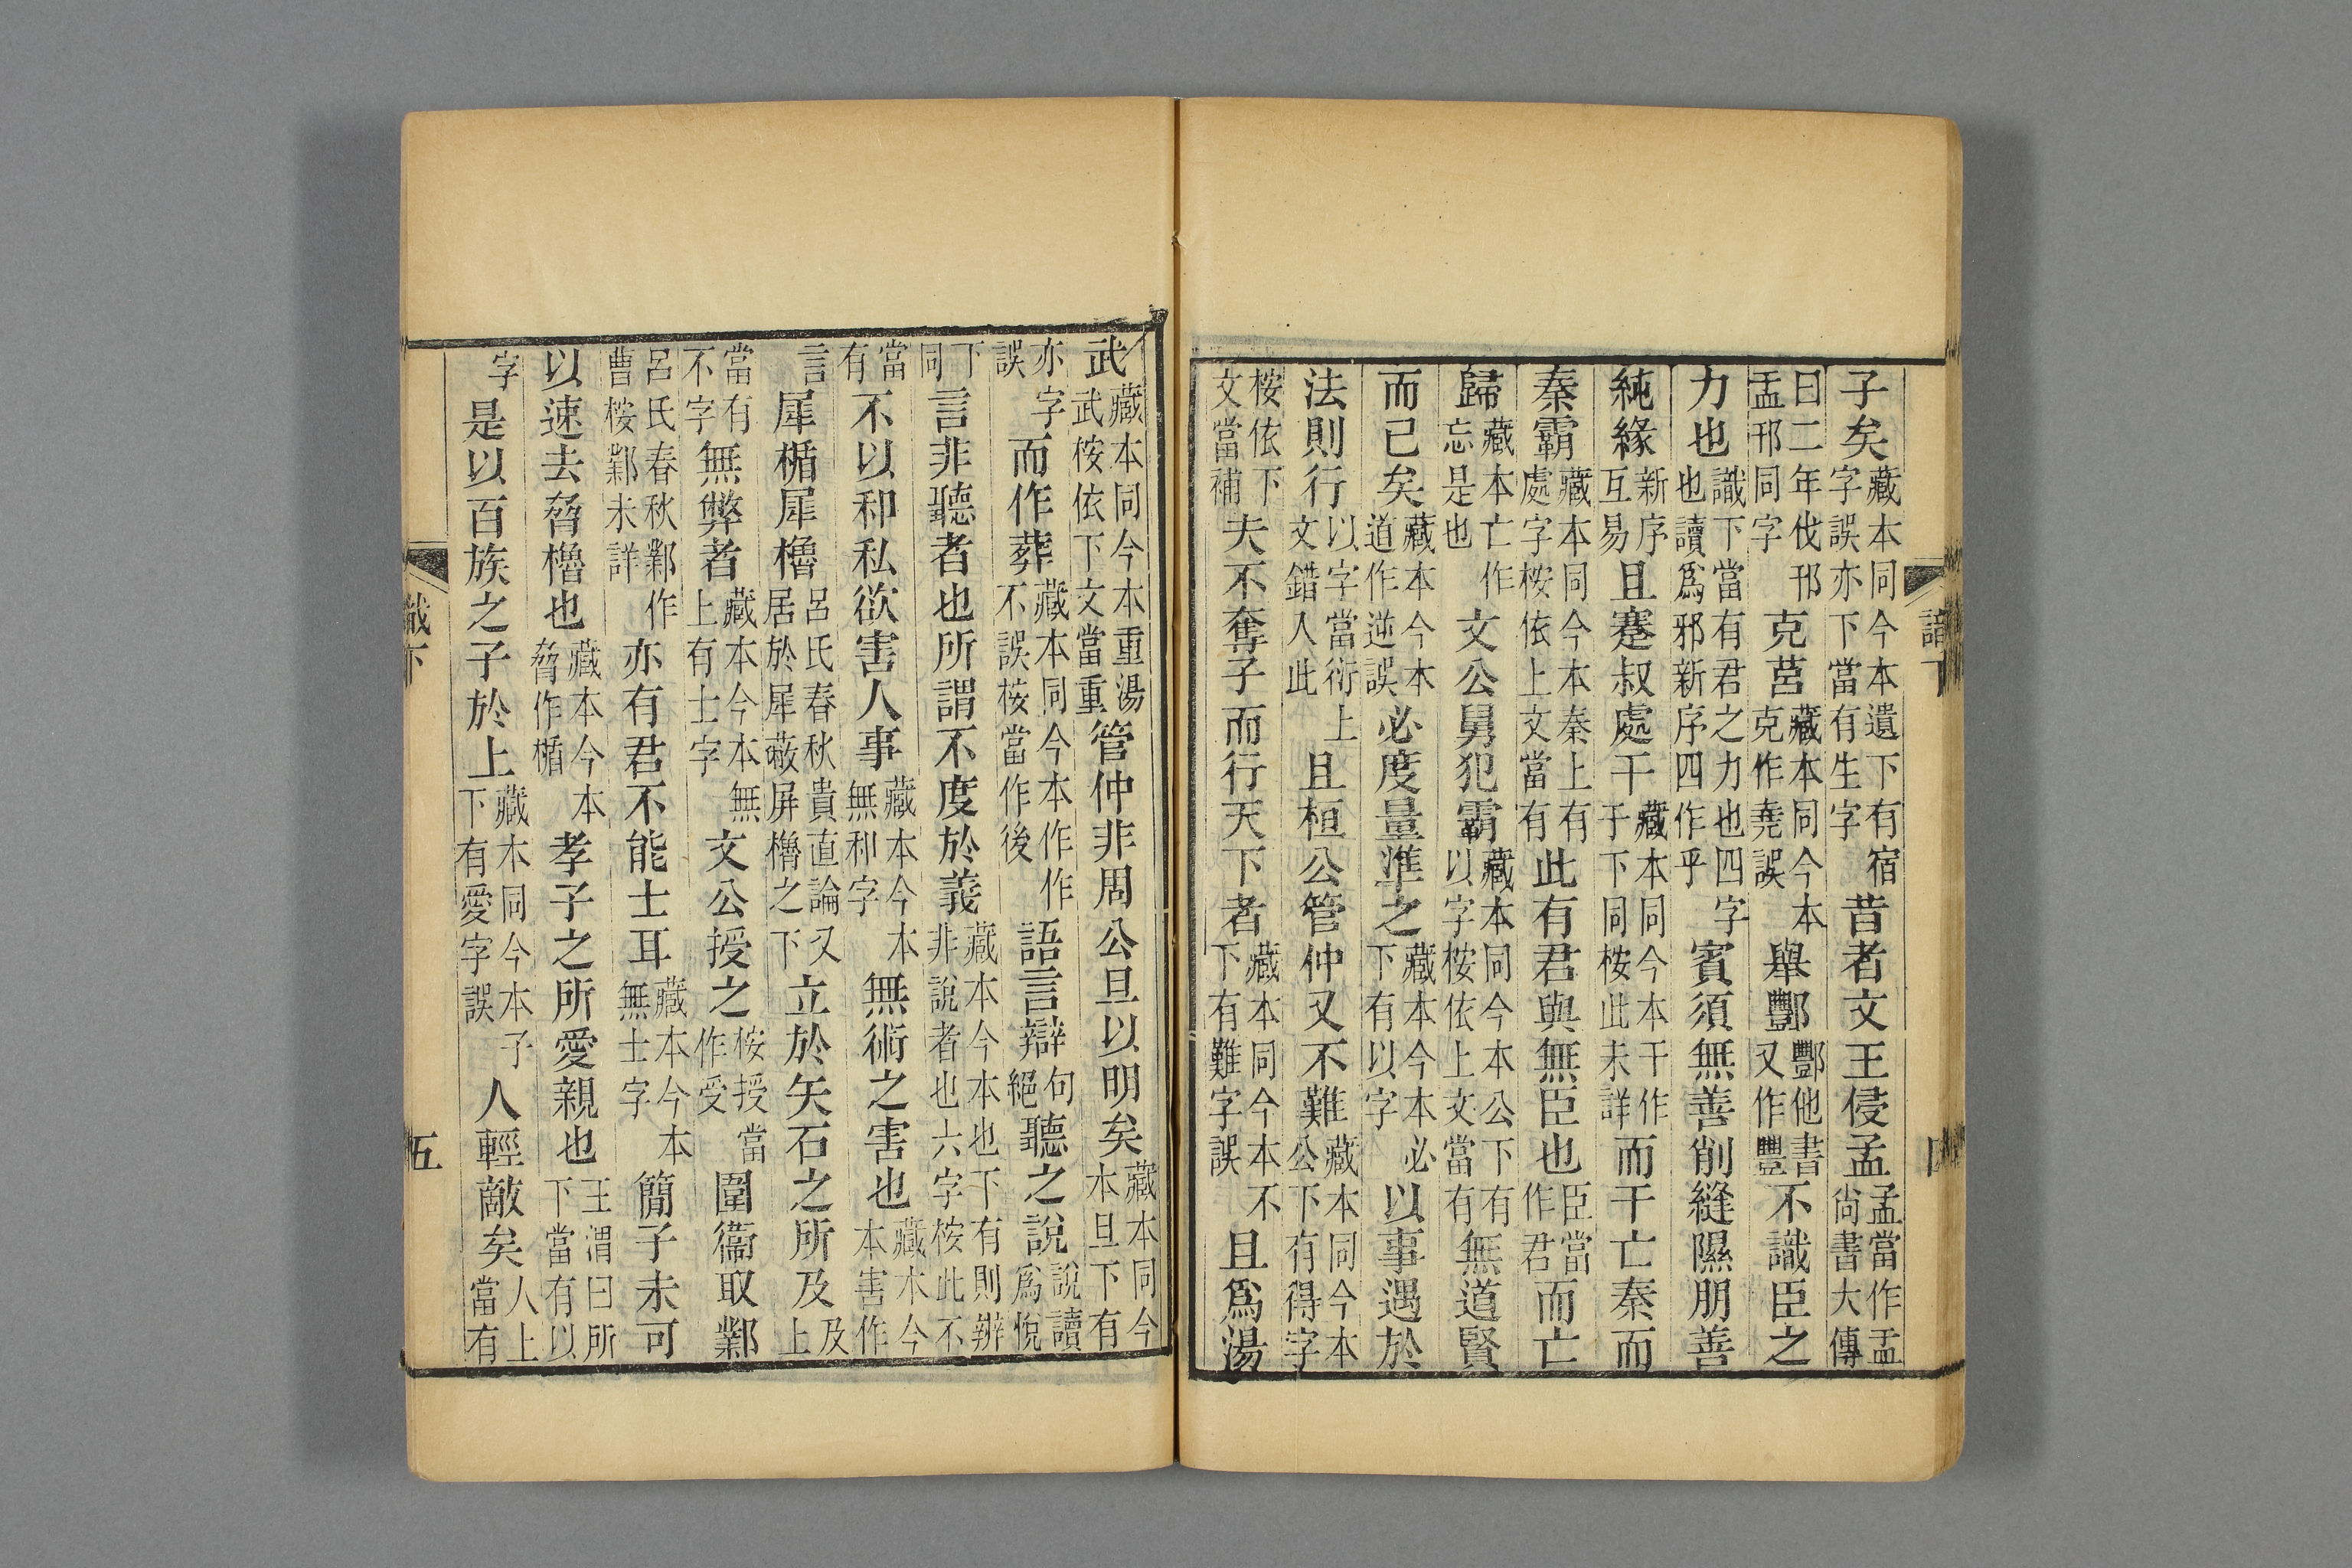 子矣藏本同今本遺下有宿字誤亦下當有生字昔者文王侵孟孟當作盂尚書大傳
曰二年伐邘盂邘同字克莒藏本同今本克作堯誤舉酆酆他書又作豐不識臣之
力也識下當有君之力也四字也讀爲邪新序四作乎賓須無善削縫隰朋善
純緣新序互易且蹇叔處干藏本同今本干作于下同桉此未詳而干亡秦而
秦霸藏本同今本秦上有處字桉依上文當有此有君與無臣也臣當作君而亡
歸藏本亡作忘是也文公舅犯霸藏本同今本公下有以字桉依上文當有無道賢
而已矣藏本今本道作逆誤必度量準之藏本今本必下有以字以事遇於
法則行以字當衍上文錯入此且桓公管仲又不難藏本同今本公下有得字
桉依下文當補夫不奪子而行天下者藏本同今本不下有難字誤且爲湯
武藏本同今本重湯武桉依下文當重管仲非周公旦以明矣藏本同今本旦下有
亦字誤而作葬藏本同今本作作不誤桉當作後語言辯句絕聽之說說讀爲悅
下同言非聽者也所謂不度於義藏本今本也下有則辨非說者也六字桉此不
當有不以和私欲害人事藏本今本無和字無術之害也藏本今本害作
言犀楯犀櫓呂氏春秋貴直論又居於犀蔽屏櫓之下立於矢石之所及及上
當有不字無弊者藏本今本無上有士字文公授之桉授當作受圍衞取鄴
呂氏春秋鄴作曹桉鄴未詳亦有君不能士耳藏本今本無士字簡子未可
以速去脅櫓也藏本今本脅作楯孝子之所愛親也王渭曰所下當有以
字是以百族之子於上藏本同今本子下有愛字誤人輕敵矣人上當有
識下
五